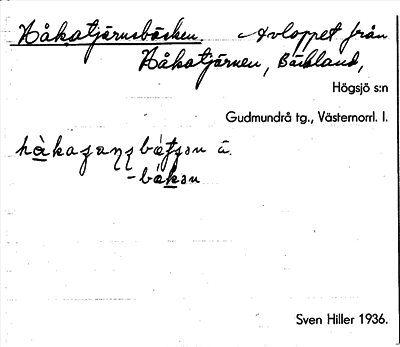 Håkatjärnsbäcken. Avloppet från
Håkatjärnen, Bäckland,
Högsjö s:n
Gudmundrå tg., Västernorrl. l.
Sven Hiller 1936.